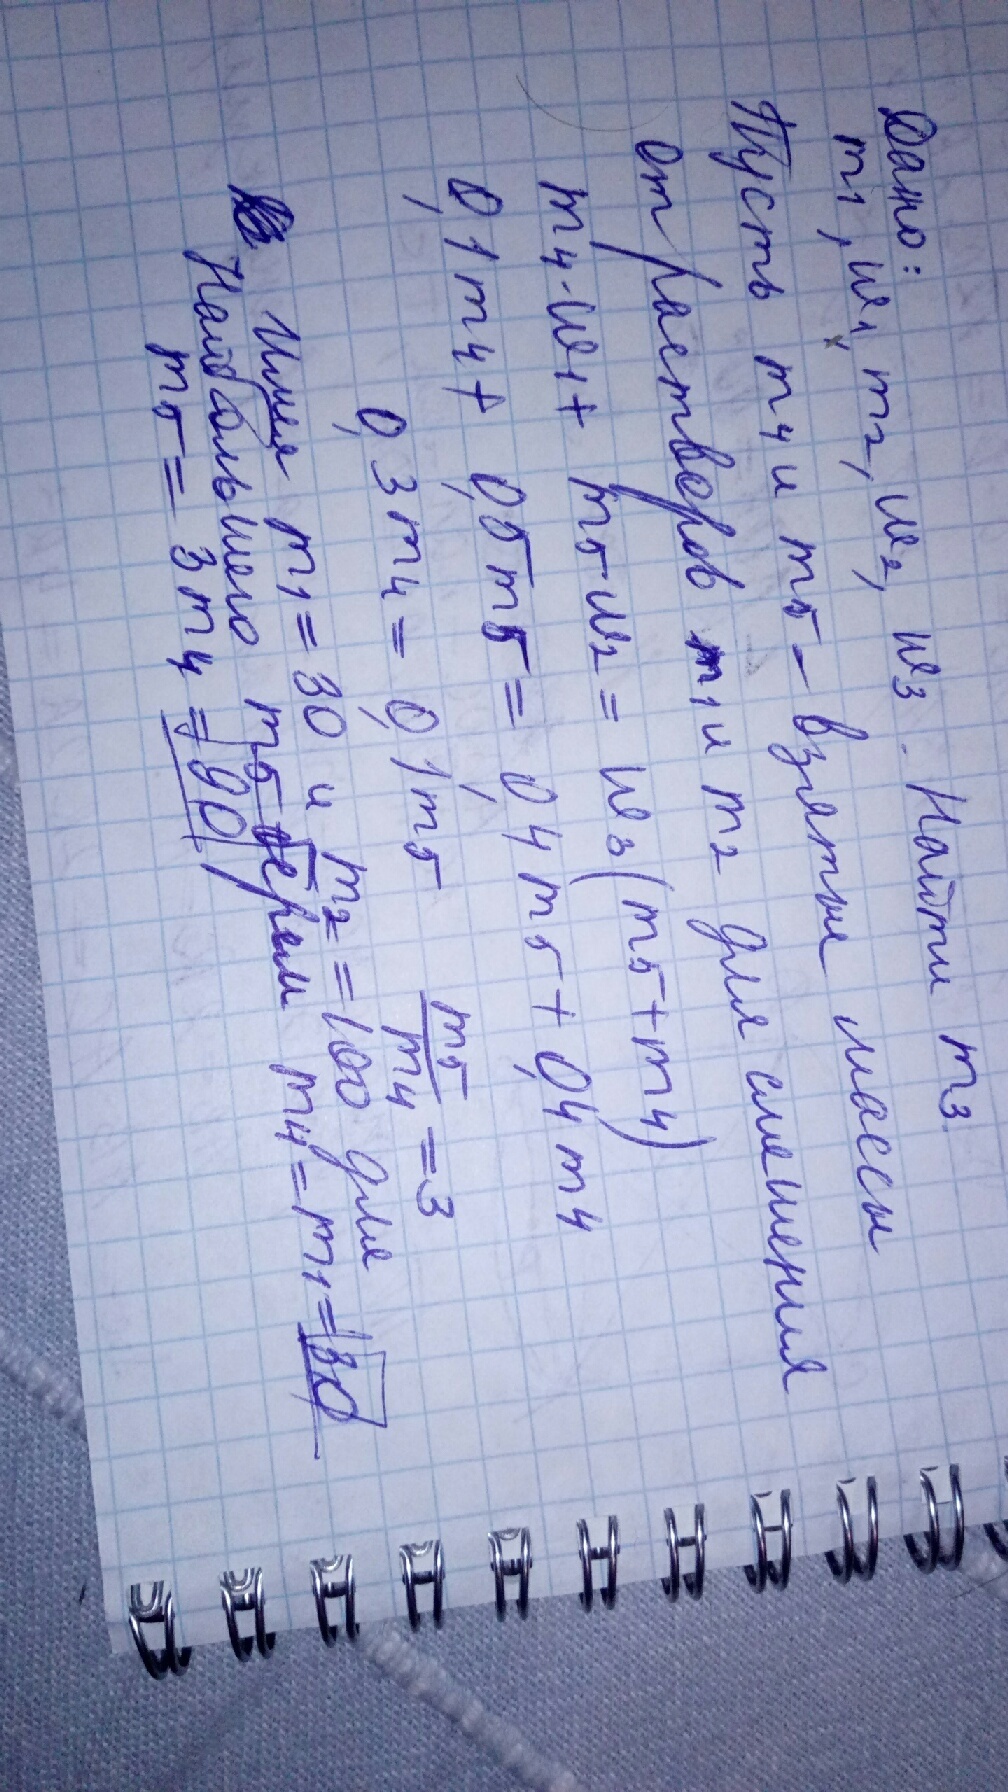 Дано:
m1, w1, m2, w2, w3. Найти m3
Пусть m4 и m5 - взятые массы
от растверов m1 и m2 для смешения
m4·w1 + m5·w2 = w3(m5+m4)
0,1m4 + 0,5m5 = 0,4m5 + 0,4m4
0,3m4 = 0,1m5 m5/m4 = 3
Имея m1 = 30 и m2 = 100 для
Наибольшего m5 берем m4 = m1 = 30
m5 = 3m4 = 90